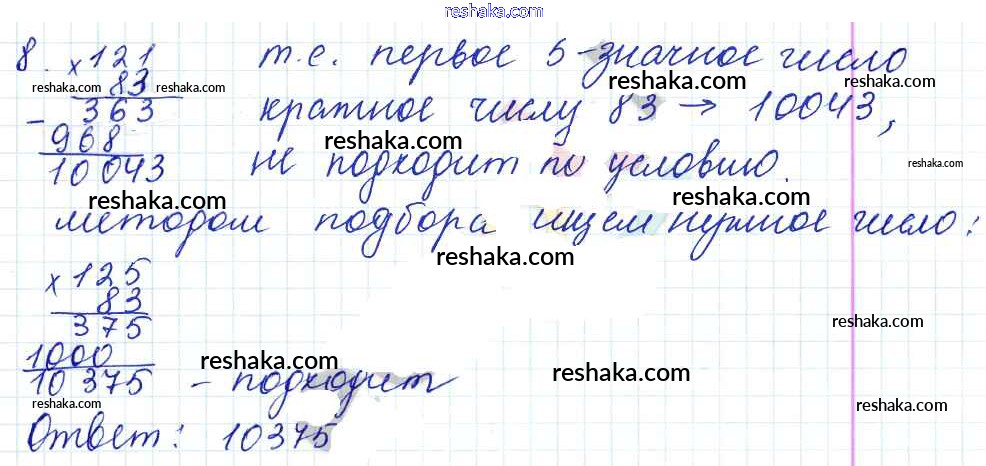 reshaka.com
8. × 121 т.е. первое 5-значное число
83 reshaka.com
reshaka.com
– 363 кратное числу 83 → 10043,
reshaka.com
968 reshaka.com
10043 не подходит по условию.
reshaka.com reshaka.com
методом подбора ищем нужное число:
reshaka.com
× 125
83
375
reshaka.com
1000 reshaka.com
10375 – подходит reshaka.com
reshaka.com reshaka.com
Ответ: 10375